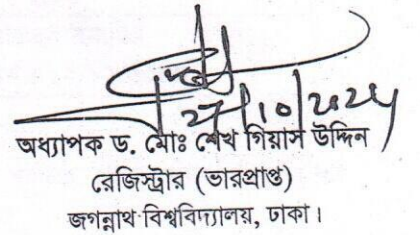 অধ্যাপক ড. মোঃ শেখ গিয়াস উদ্দিন
রেজিস্ট্রার (ভারপ্রাপ্ত)
জগন্নাথ বিশ্ববিদ্যালয়, ঢাকা।